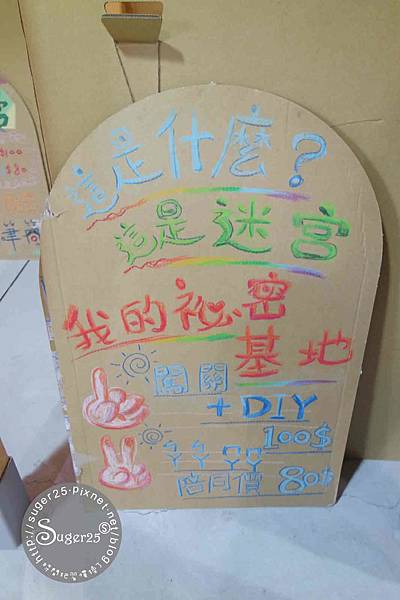 這是什麼?
這是迷宮
我的祕密
基地
闖關
+DIY
100$
陪同價 80$
宮
$100
$80
Suger25
http://suger25.pixnet.net/blog